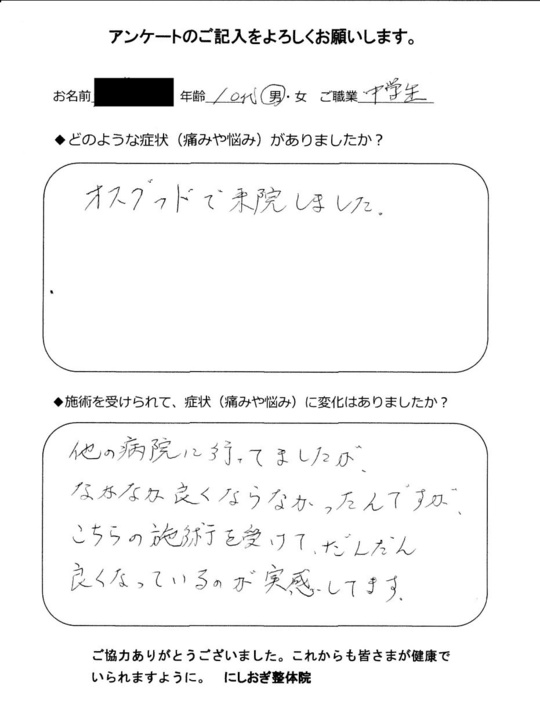 アンケートのご記入をよろしくお願いします。
お名前 年齢 10代 男・女 ご職業 中学生
◆どのような症状（痛みや悩み）がありましたか？
オスグッドで来院しました。
◆施術を受けられて、症状（痛みや悩み）に変化はありましたか？
他の病院に行ってましたが、
なかなか良くならなかったんですが、
こちらの施術を受けて、だんだん
良くなっているのが実感してます。
ご協力ありがとうございました。これからも皆さまが健康で
いられますように。 にしおぎ整体院